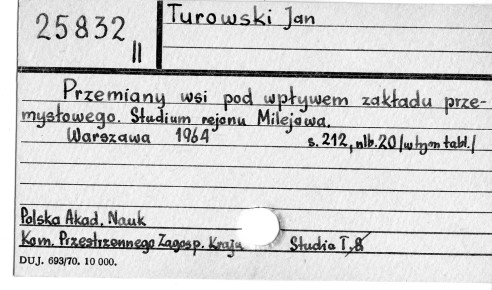 25832
II
Turowski Jan
Przemiany wsi pod wpływem zakładu prze-
mysłowego. Studium rejonu Milejowa.
Warszawa 1964 s. 212, nlb. 20 /w tym tabl./
Polska Akad. Nauk
Kom. Przestrzennego Zagosp. Kraju Studia T, 8
DUJ. 693/70. 10 000.